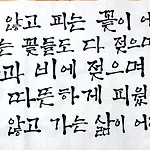 않고 피는 꽃이 어
는 꽃들도 다 젖으며
과 비에 젖으며
따뜻하게 피웠
않고 가는 삶이 어